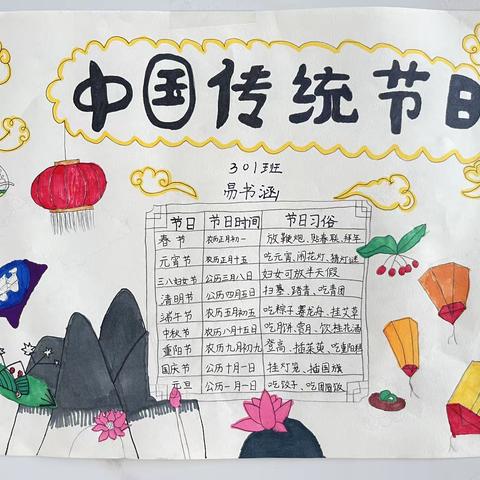 中国传统节日
301班
易书涵
节日 节日时间 节日习俗
春节 农历正月初一 放鞭炮、贴春联、拜年
元宵节 农历正月十五 吃元宵、闹花灯、猜灯谜
三八妇女节 公历三月八日 妇女可放半天假
清明节 公历四月五日 扫墓、踏青、吃青团
端午节 农历五月初五 吃粽子、赛龙舟、挂艾草
中秋节 农历八月十五日 吃月饼、赏月、饮桂花酒
重阳节 农历九月初九 登高、插茱萸、吃重阳糕
国庆节 公历十月一日 挂灯笼、插国旗
元旦 公历一月一日 吃饺子、吃团圆饭